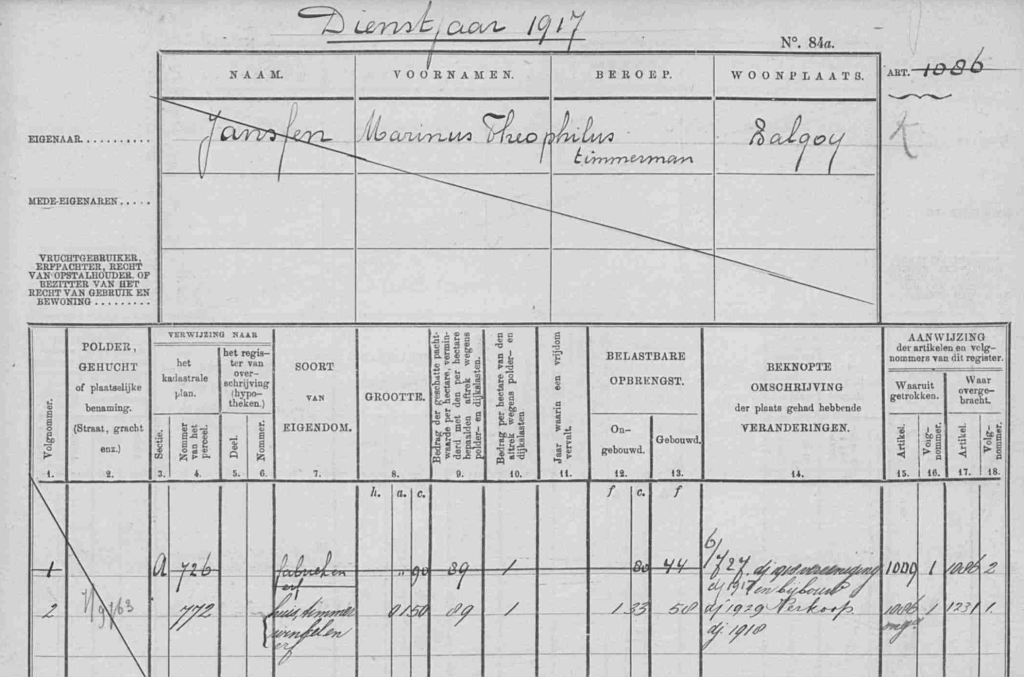 Dienstjaar 1917
N°. 84a.
NAAM. VOORNAMEN. BEROEP. WOONPLAATS. ART. 1086
EIGENAAR Jansen Marinus Theophilus timmerman Balgoy
MEDE-EIGENAREN
VRUCHTGEBRUIKER,
ERFPACHTER, RECHT
VAN OPSTALHOUDER, OF
BEZITTER VAN HET
RECHT VAN GEBRUIK EN
BEWONING
Volgnommer.
POLDER,
GEHUCHT
of plaatselijke
benaming.
(Straat, gracht
enz.)
VERWIJZING NAAR
het
kadastrale
plan.
Sectie.
Nommer
van het
perceel.
het regis-
ter van
over-
schrijving
(hypo-
theken.)
Deel.
Nommer.
SOORT
VAN
EIGENDOM.
GROOTTE.
Bedrag der geschatte pacht-
waarde per hectare, vermin-
derd met den per hectare
bepaalden aftrek wegens
polder- en dijkslasten.
Bedrag per hectare van den
aftrek wegens polder- en
dijkslasten
Jaar waarin een vrijdom
vervalt.
BELASTBARE
OPBRENGST.
On-
gebouwd.
Gebouwd.
BEKNOPTE
OMSCHRIJVING
der plaats gehad hebbende
VERANDERINGEN.
AANWIJZING
der artikelen en volg-
nommers van dit register.
Waaruit
getrokken.
Artikel.
Volg-
nommer.
Waar
overge-
bracht.
Artikel.
Volg-
nommer.
1. 2. 3. 4. 5. 6. 7. 8. 9. 10. 11. 12. 13. 14. 15. 16. 17. 18.
h. a. c. f c. f
1 A 726 erf 90 89 1 80 44 dj 1917 en bijbouw 1009 1 1086 2
2 772 huis, timmer
winkel en
erf
01 50 89 1 1 33 58 dj 1929 Verkoop 1086 1 1231 1
dj 1918